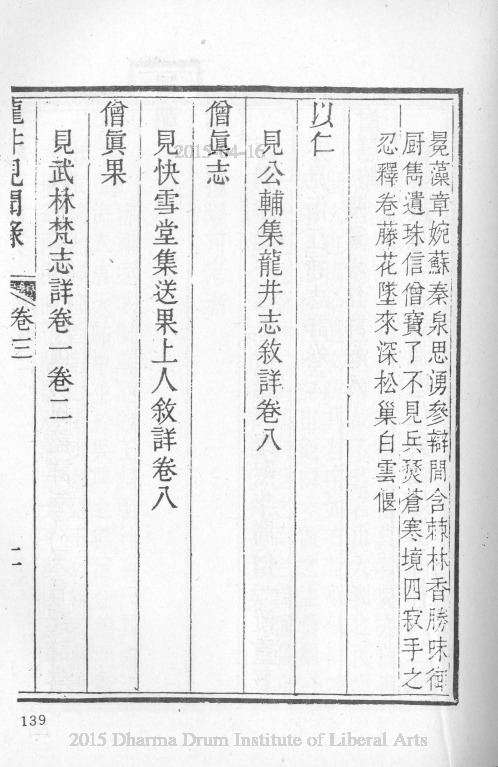 晁藻章婉蘇秦泉思湧參辯間含棘林香勝味衙
厨雋遺珠信僧寶了不見兵燹蒼寒境四寂手之
忍釋卷藤花墜來深松巢白雲偃
以仁
見公輔集龍井志敘詳卷八
僧眞志
見快雪堂集送果上人敘詳卷八
僧眞果
見武林梵志詳卷一 卷二
龍井見聞錄 卷三 二
139
2015-04-16
2015 Dharma Drum Institute of Liberal Arts